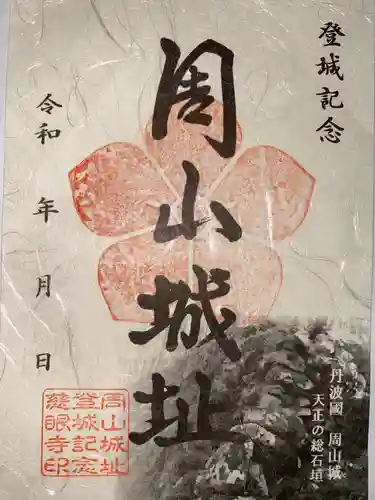 登城記念
周山城址
令和　年　月　日
丹波國　周山城
天正の総石垣
周山城址
登城記念
慈眼寺印